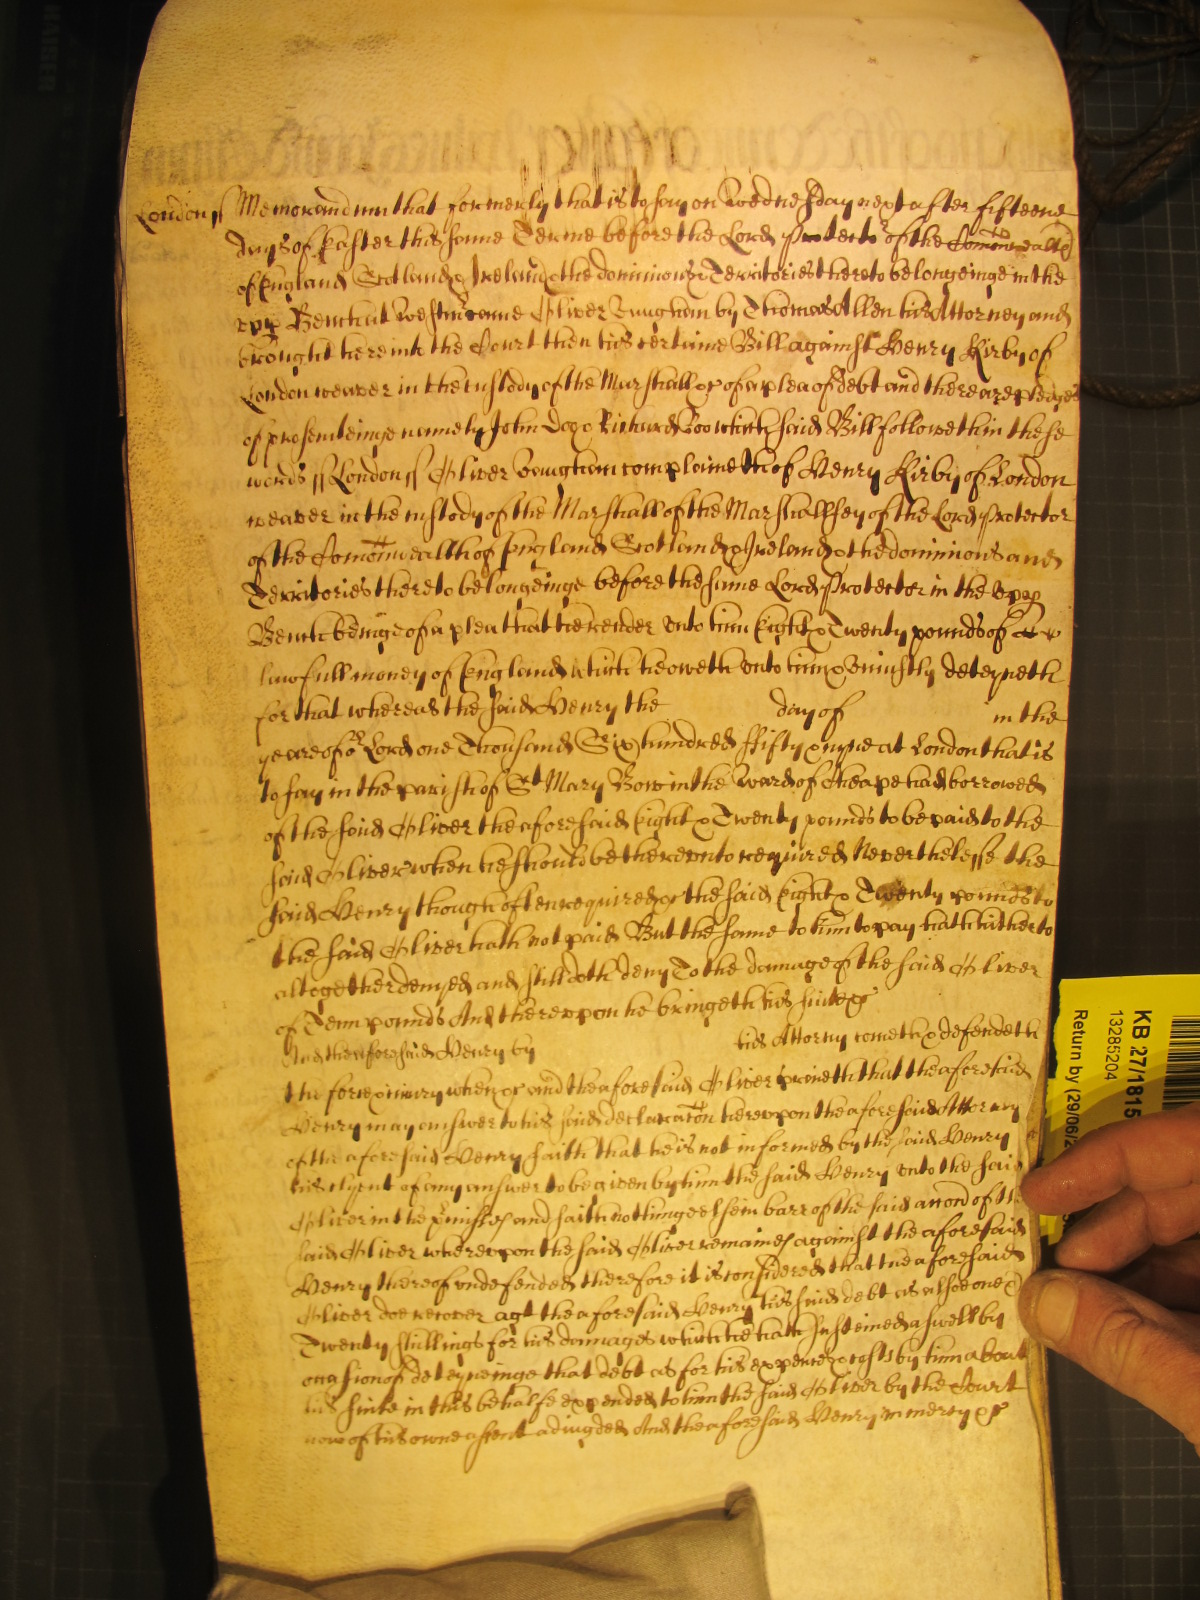 London ss Memorandum that formerly that is to say on Wednesday next after fifteene
dayes of Easter this same Terme before the Lord Protector of the Comonwealth
of England Scotland & Ireland & the dominions & Territories thereto belongeinge in the
upp Bench at Westmr came Oliver Vaughan by Thomas Allen his Attorney and
brought here into the Court then his certaine Bill against Henry Kirby of
London weaver in the custody of the Marshall &c of a plea of debt and there are pledges
of prosecuteinge namely John Doe & Richard Roo which said Bill followeth in these
words ss London ss Oliver Vaughan complaineth of Henry Kirby of London
weaver in the custody of the Marshall of the Marshallsey of the Lord Protector
of the Comonwealth of England Scotland & Ireland & the dominions and
Territories thereto belongeinge before the same Lord Protector in the upp
Bench beinge of a plea that he render unto him Eight & Twenty pounds of
lawfull money of England which he oweth unto him & uniustly deteyneth
for that whereas the said Henry the day of in the
yeare of or Lord one Thousand Six hundred Fifty & nyne at London that is
to say in the parish of St Mary Bow in the Ward of Cheape had borrowed
of the said Oliver the aforesaid Eight & Twenty pounds to be paid to the
said Oliver when he should be thereunto required Neverthelesse the
said Henry though often required &c the said Eight & Twenty pounds to
the said Oliver hath not paid But the same to him to pay hath hitherto
altogether denyed and still doth deny To the damage of the said Oliver
of Tenn pounds And thereupon he bringeth his suite &c
And the aforesaid Henry by his Attorny cometh & defendeth
the force & iniury when &c and the aforesaid Oliver prayeth that the aforesaid
Henry may answer to his said declaracon hereupon the aforesaid Attorney
of the aforesaid Henry saith that he is not informed by the said Henry
his clyent of any answer to be given by him the said Henry unto the said
Oliver in the pmisses and saith nothinge else in barr of the said accon of the
said Oliver whereupon the said Oliver remaines against the aforesaid
Henry thereof undefended therefore it is considered that the aforesaid
Oliver doe recover agt the aforesaid Henry his said debt as alsoe one &
Twenty shillings for his damages which he hath susteined aswell by
occasion of deteyneinge that debt as for his expences & costs by him about
his suite in this behalfe expended to him the said Oliver by the Court
now of his owne assent adiudged And the aforesaid Henry in mercy &c
KB 27/1815
13285204
Return by (29/06/2